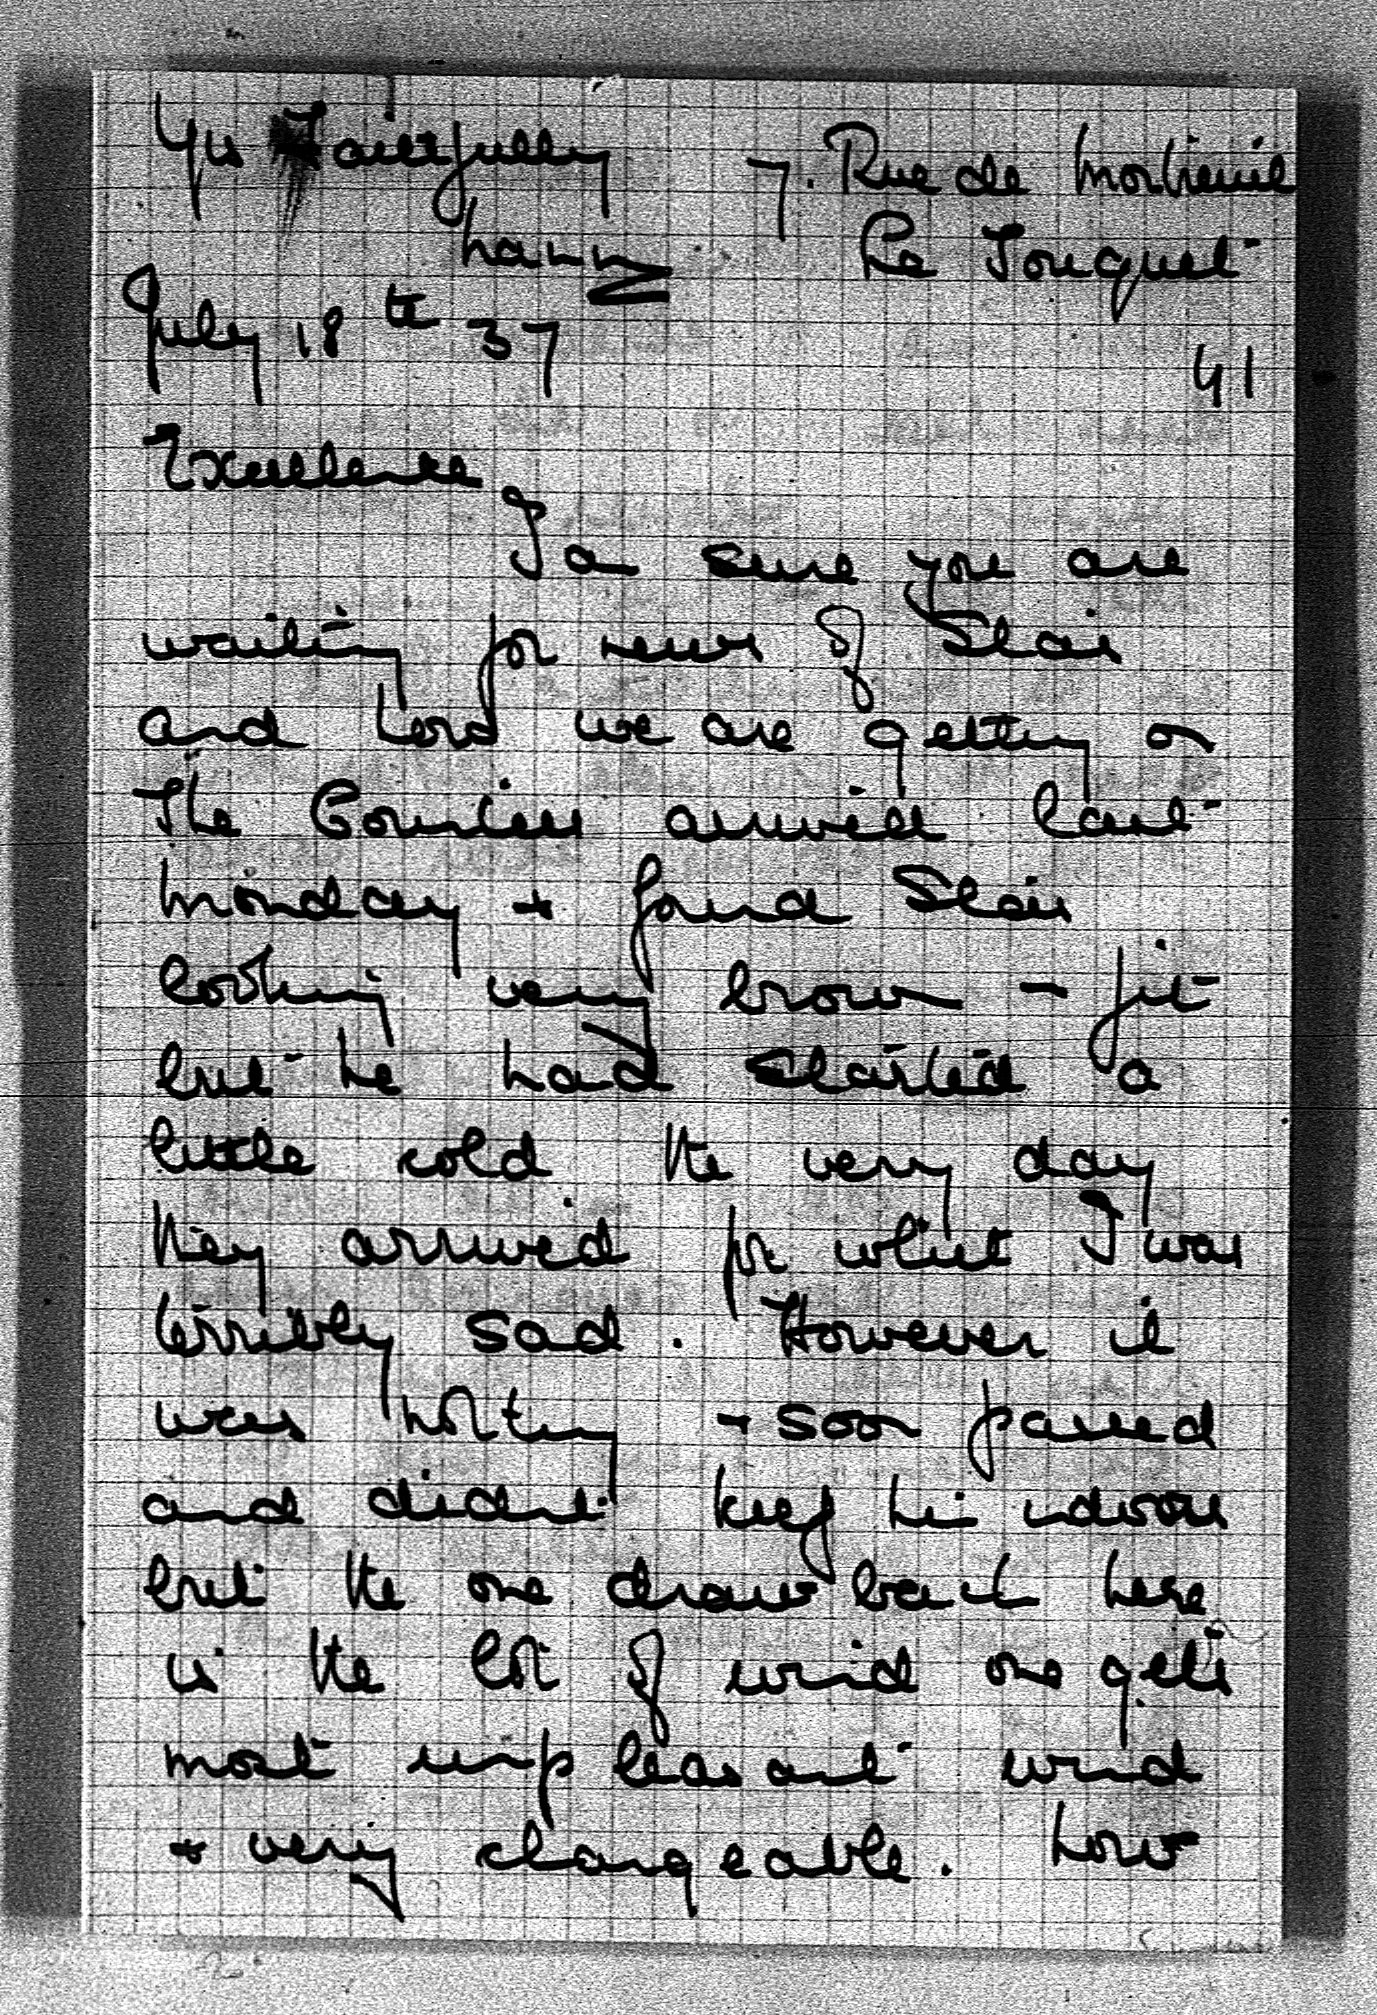 Yrs Faithfully
Nanny
7. Rue de
Le Touquet
July 18th 37
41
Excellence
I am sure you are
waiting for news of Slair
and how we are getting on
The Counties arrived last
Monday + found Slair
looking very brown + fit
but he had started a
little cold the very day
they arrived for which I was
terribly sad. However it
was nothing + soon passed
and didnt keep him indoors
but the one draw back here
is the lot of wind one gets
most unpleasant wind
+ very changeable. how